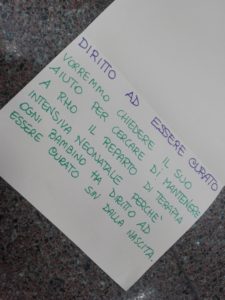 DIRITTO AD ESSERE CURATO
VORREMMO CHIEDERE IL SUO
AIUTO PER CERCARE DI MANTENERE
A RHO IL REPARTO DI TERAPIA
INTENSIVA NEONATALE PERCHÉ
OGNI BAMBINO HA DIRITTO AD
ESSERE CURATO SIN DALLA NASCITA.